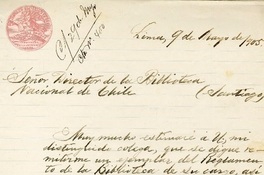 Lima, 9 de Mayo de 1905.
Señor Director de la Biblioteca
Nacional de Chile
(Santiago)
Muy mucho estimaré a U, mi
distinguido colega, que se digne re-
mitirme un ejemplar del Reglamen-
to de la Biblioteca de su cargo, así